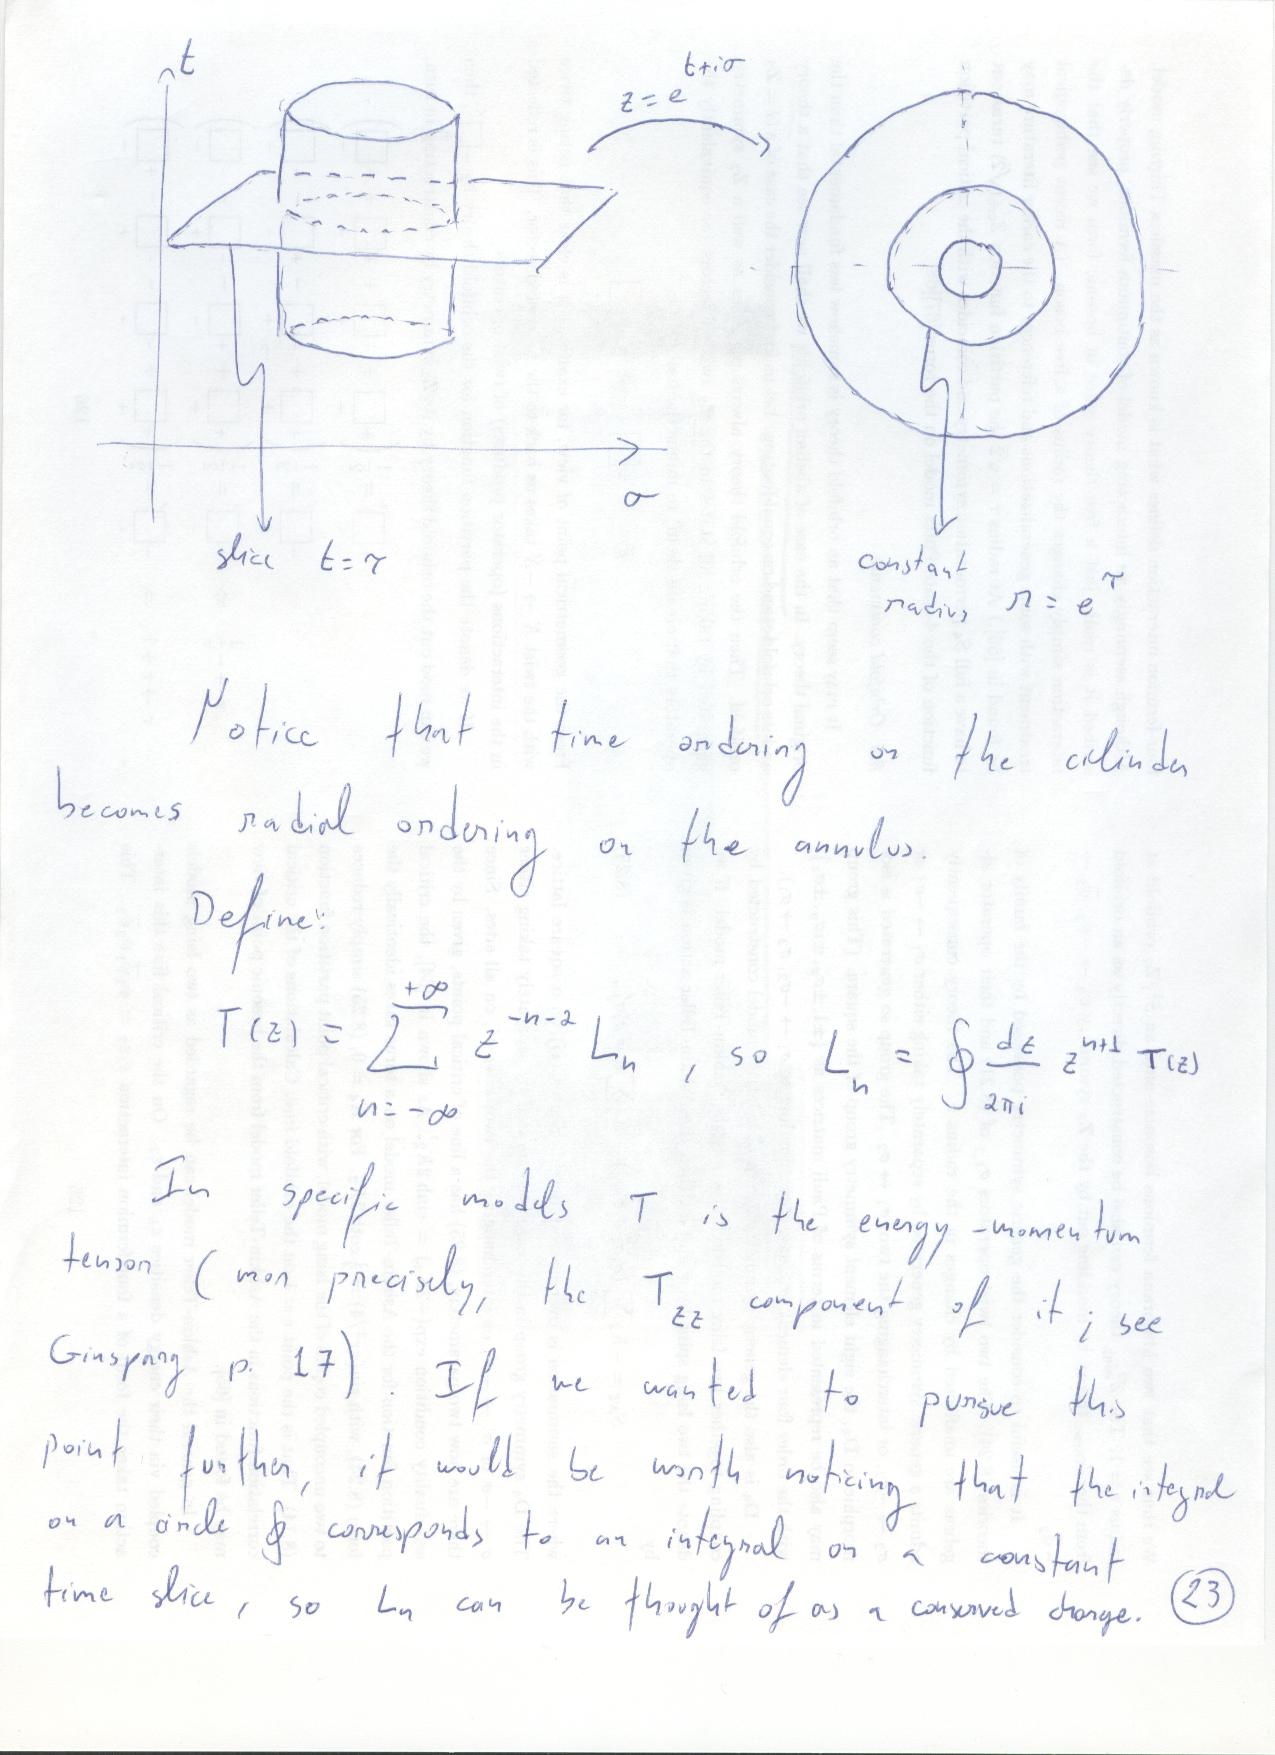 t
z = e^{t+iσ}
σ
slice t = τ
constant
radius r = e^τ
Notice that time ordering on the cilinder
becomes radial ordering on the annulus.
Define:
T(z) = \sum_{n=-∞}^{+∞} z^{-n-2} L_n , so L_n = ∮ \frac{dz}{2πi} z^{n+1} T(z)
In specific models T is the energy-momentum
tensor (mor precisely, the T_{zz} component of it ; see
Ginsparg p. 17). If we wanted to pursue this
point further, it would be worth noticing that the integral
on a circle ∮ corresponds to an integral on a constant
time slice, so L_n can be thought of as a conserved charge.
23